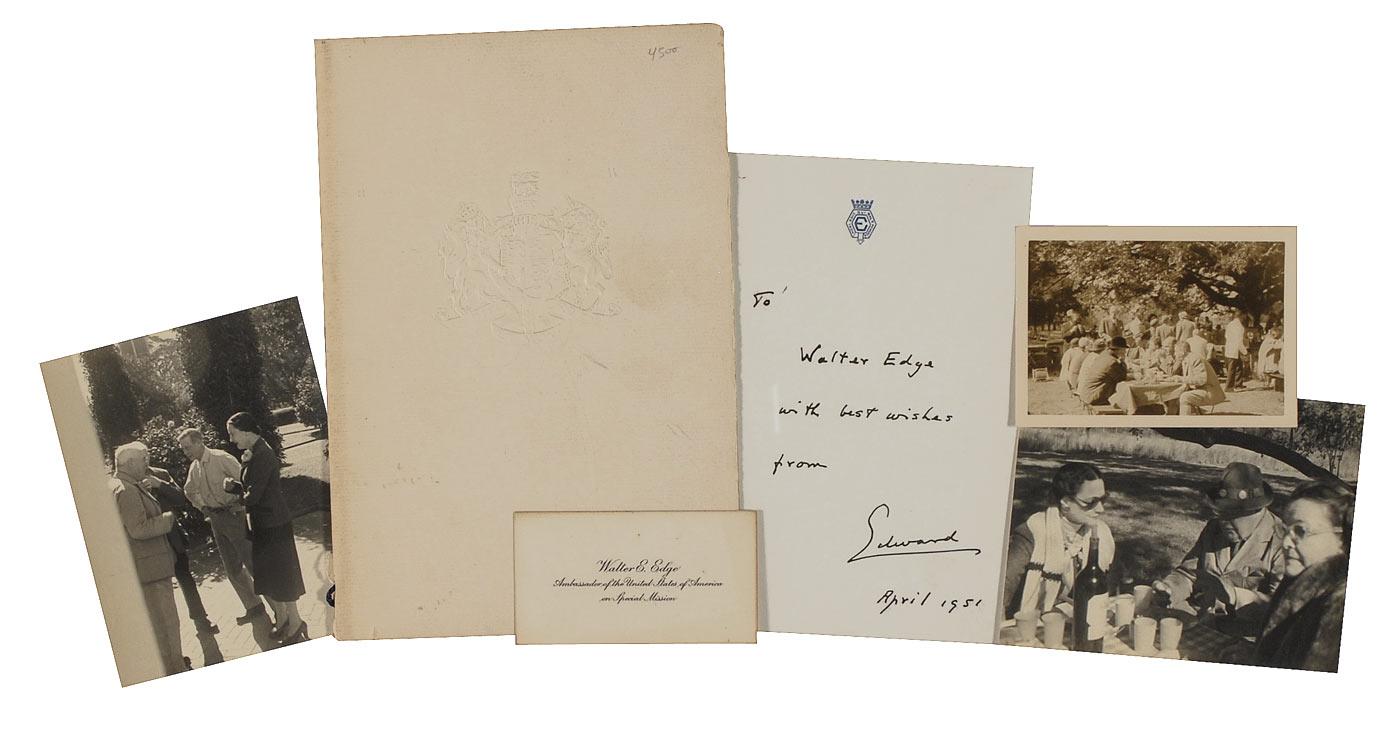 4500
To
Walter Edge
with best wishes
from
Edward
April 1951
E
Walter E. Edge
Ambassador of the United States of America
on Special Mission